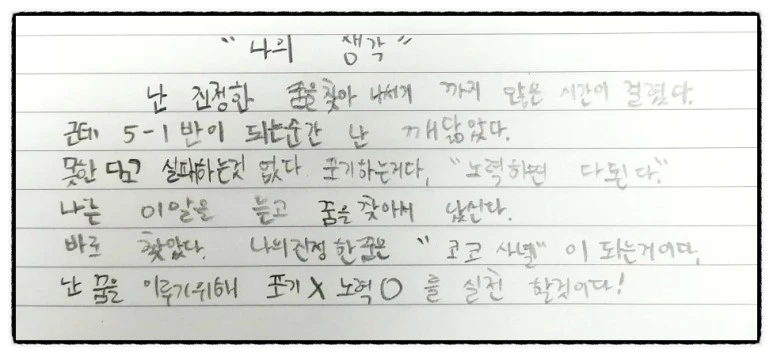 “나의 생각”
난 진정한 꿈을찾아 나서기 까지 많은 시간이 걸렸다.
근데 5-1반이 되는순간 난 깨닳았다.
못한다고 실패하는것 없다. 포기하는거다, “노력하면 다된다.”
나는 이말을 듣고 꿈을찾아서 났선다.
바로 찾았다. 나의진정한꿈은 “코코 샤넬”이 되는거이다.
난 꿈을 이루기위해 포기X 노력O 를 실천 할것이다!